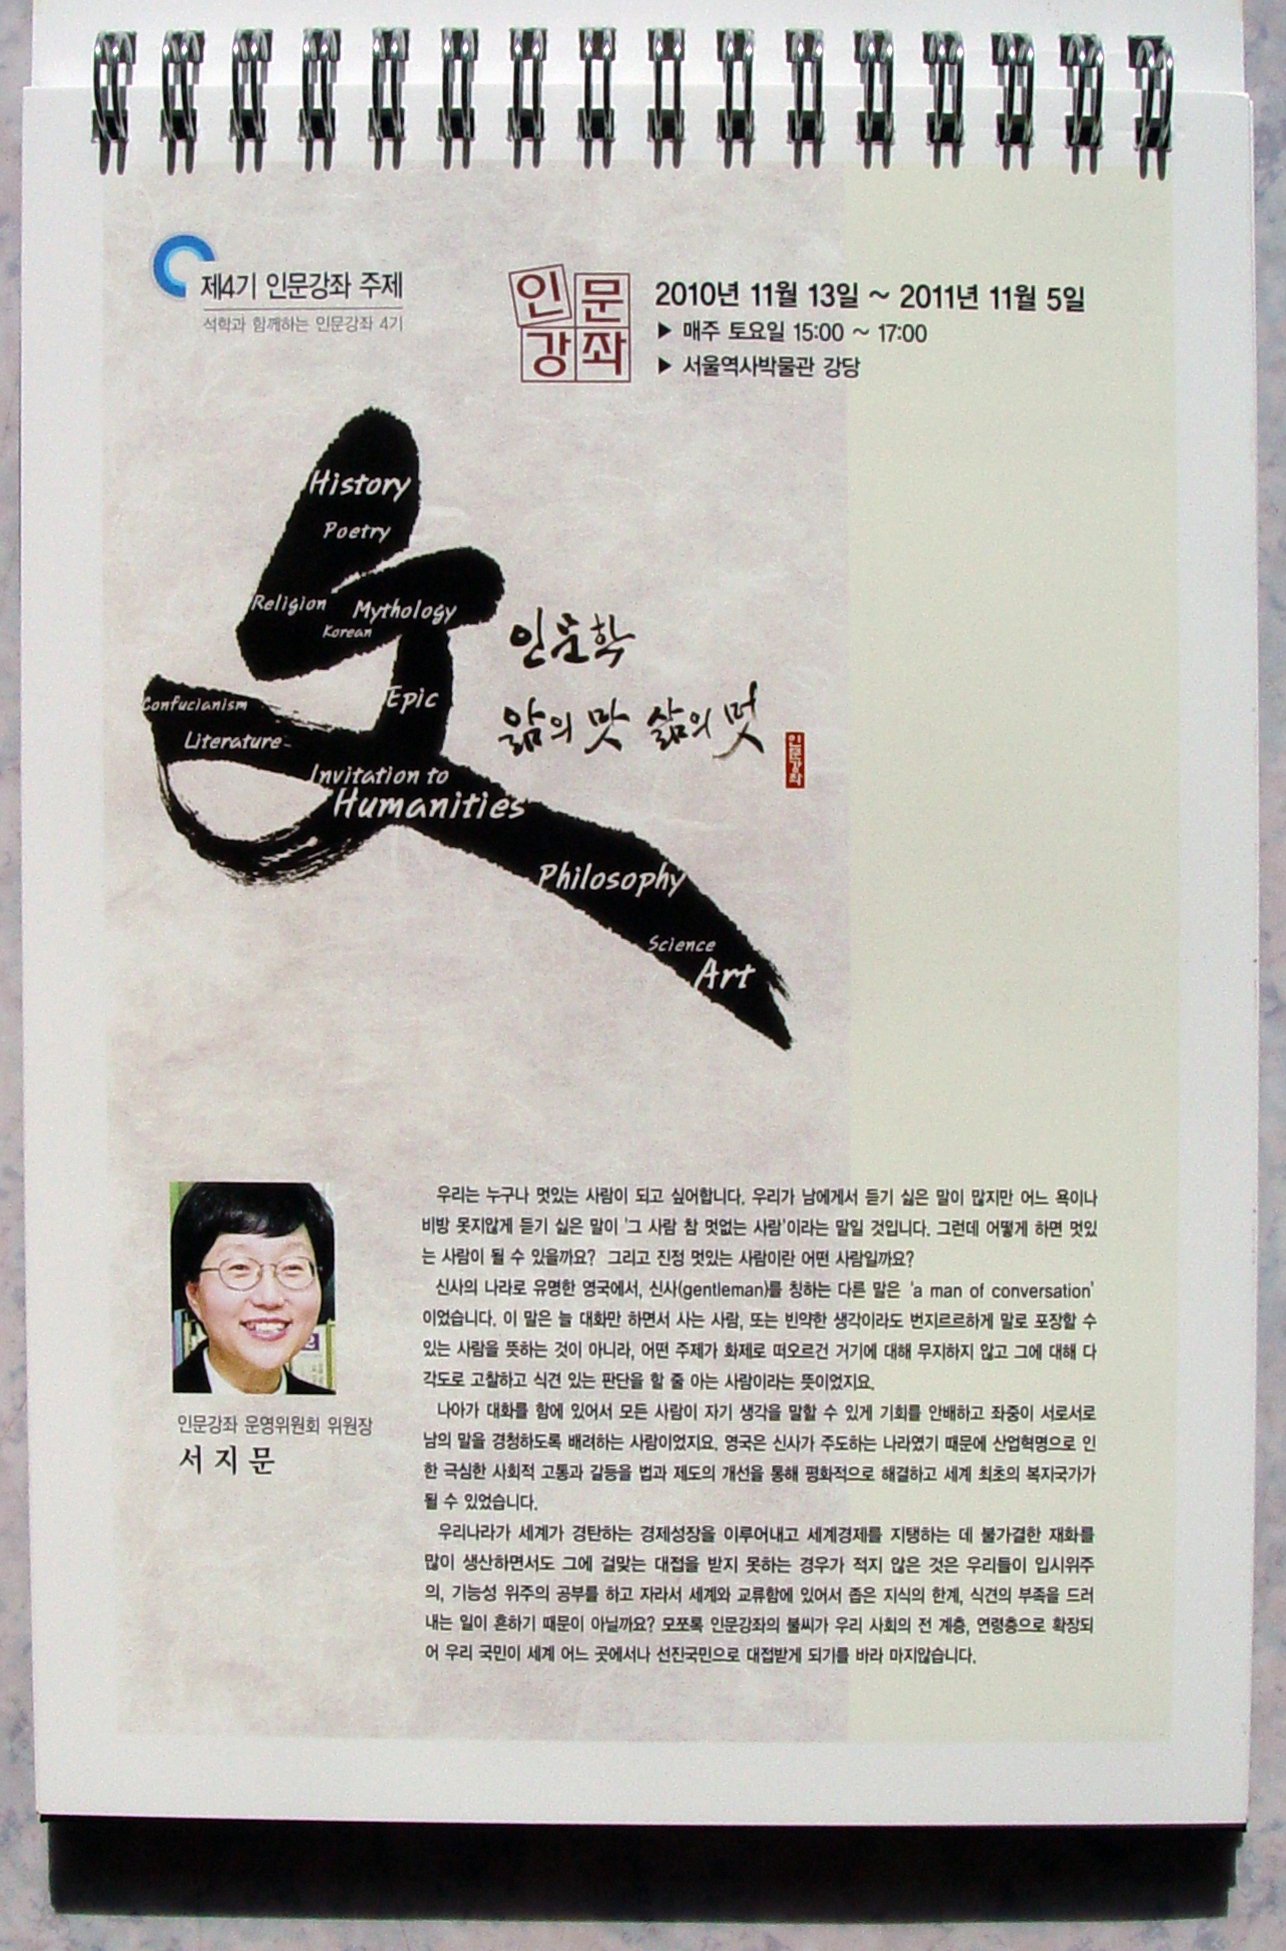 제4기 인문강좌 주제
석학과 함께하는 인문강좌 4기
인문
강좌
2010년 11월 13일 ~ 2011년 11월 5일
▶ 매주 토요일 15:00 ~ 17:00
▶ 서울역사박물관 강당
History
Poetry
Religion
Mythology
Korean
Confucianism
Epic
Literature
Invitation to
Humanities
Philosophy
Science
Art
인문학
앎의 맛 삶의 멋
인문강좌
우리는 누구나 멋있는 사람이 되고 싶어합니다. 우리가 남에게서 듣기 싫은 말이 많지만 어느 욕이나
비방 못지않게 듣기 싫은 말이 '그 사람 참 멋없는 사람'이라는 말일 것입니다. 그런데 어떻게 하면 멋있
는 사람이 될 수 있을까요? 그리고 진정 멋있는 사람이란 어떤 사람일까요?
신사의 나라로 유명한 영국에서, 신사(gentleman)를 칭하는 다른 말은 'a man of conversation'
이었습니다. 이 말은 늘 대화만 하면서 사는 사람, 또는 빈약한 생각이라도 번지르르하게 말로 포장할 수
있는 사람을 뜻하는 것이 아니라, 어떤 주제가 화제로 떠오르건 거기에 대해 무지하지 않고 그에 대해 다
각도로 고찰하고 식견 있는 판단을 할 줄 아는 사람이라는 뜻이었지요.
나아가 대화를 함에 있어서 모든 사람이 자기 생각을 말할 수 있게 기회를 안배하고 좌중이 서로서로
남의 말을 경청하도록 배려하는 사람이었지요. 영국은 신사가 주도하는 나라였기 때문에 산업혁명으로 인
한 극심한 사회적 고통과 갈등을 법과 제도의 개선을 통해 평화적으로 해결하고 세계 최초의 복지국가가
될 수 있었습니다.
우리나라가 세계가 경탄하는 경제성장을 이루어내고 세계경제를 지탱하는 데 불가결한 재화를
많이 생산하면서도 그에 걸맞는 대접을 받지 못하는 경우가 적지 않은 것은 우리들이 입시위주
의, 기능성 위주의 공부를 하고 자라서 세계와 교류함에 있어서 좁은 지식의 한계, 식견의 부족을 드러
내는 일이 흔하기 때문이 아닐까요? 모쪼록 인문강좌의 불씨가 우리 사회의 전 계층, 연령층으로 확장되
어 우리 국민이 세계 어느 곳에서나 선진국민으로 대접받게 되기를 바라 마지않습니다.
인문강좌 운영위원회 위원장
서지문